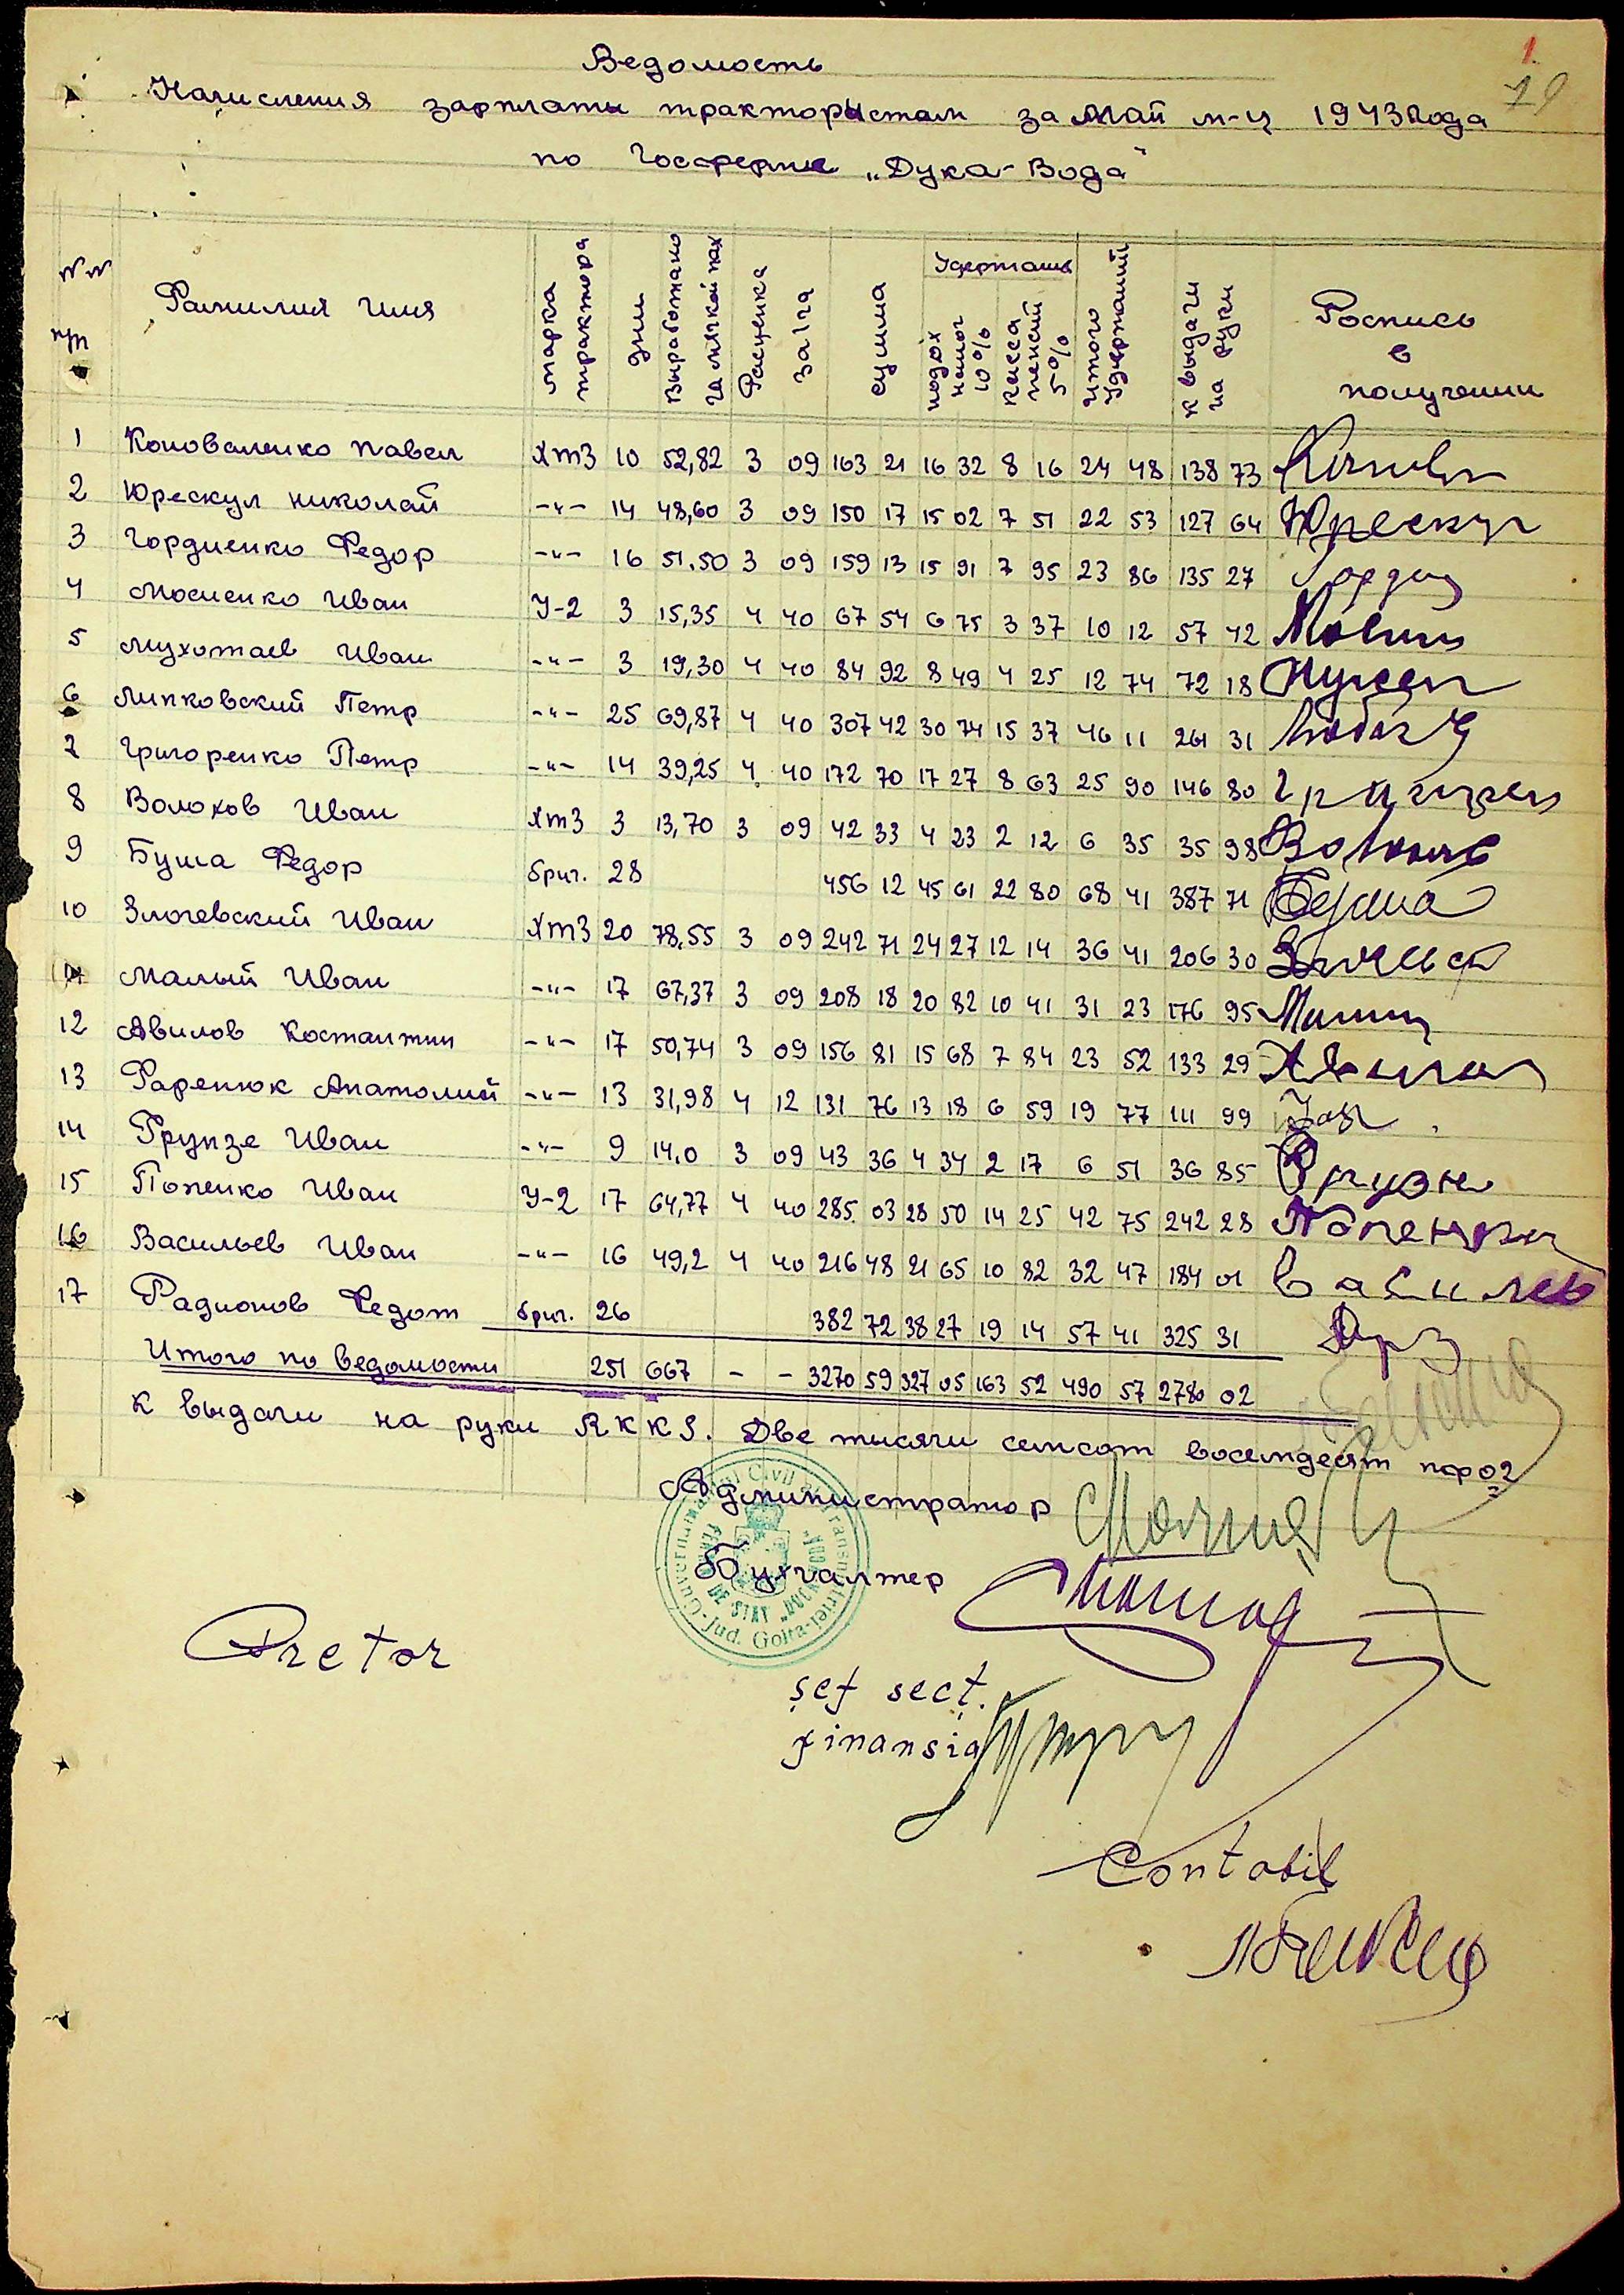 1
Ведомость
Начисления зарплаты трактористам за май м-ц 1943 года
по Госферме „Дука-Вода"
№№ п/п Фамилия Имя марка трактора дни выработано га мягкой пах Расценка за 1 га сумма Удержать подох налог 10% касса пенсий 5% итого Удержаний к выдачи на руки Роспись в получении
1 Коноваленко Павел ХТЗ 10 52,82 3 09 163 21 16 32 8 16 24 48 138 73
2 Юрескул Николай -"- 14 48,60 3 09 150 17 15 02 7 51 22 53 127 64 Юрескул
3 Гордиенко Федор -"- 16 51.50 3 09 159 13 15 91 7 95 23 86 135 27
4 Мосиенко Иван У-2 3 15,35 4 40 67 54 6 75 3 37 10 12 57 42
5 Мухотаев Иван -"- 3 19,30 4 40 84 92 8 49 4 25 12 74 72 18
6 Липковский Петр -"- 25 69,87 4 40 307 42 30 74 15 37 46 11 261 31
7 Григоренко Петр -"- 14 39,25 4 40 172 70 17 27 8 63 25 90 146 80
8 Волохов Иван ХТЗ 3 13,70 3 09 42 33 4 23 2 12 6 35 35 98
9 Буша Федор бриг. 28 456 12 45 61 22 80 68 41 387 71
10 Злочевский Иван ХТЗ 20 78,55 3 09 242 71 24 27 12 14 36 41 206 30
11 Малый Иван -"- 17 67,37 3 09 208 18 20 82 10 41 31 23 176 95
12 Авилов Костантин -"- 17 50,74 3 09 156 81 15 68 7 84 23 52 133 29
13 Фаренюк Анатолий -"- 13 31,98 4 12 131 76 13 18 6 59 19 77 111 99
14 Фрунзе Иван -"- 9 14.0 3 09 43 36 4 34 2 17 6 51 36 85 Фрузе
15 Попенко Иван У-2 17 64,77 4 40 285 03 28 50 14 25 42 75 242 28 Попенко
16 Васильев Иван -"- 16 49,2 4 40 216 48 21 65 10 82 32 47 184 01 Васильев
17 Радионов Федот бриг. 26 382 72 38 27 19 14 57 41 325 31
Итого по ведомости 251 667 - - 3270 59 327 05 163 52 490 57 2780 02
К выдачи на руки RKKS. Две тысячи семсот восемдесят пф 02
Администратор
Бухгалтер
Guvernământul Civil al Transnistriei - Jud. Golta
FERMA DE STAT „DUCA-VODA"
Pretor
șef secț.
finansia
Contabil